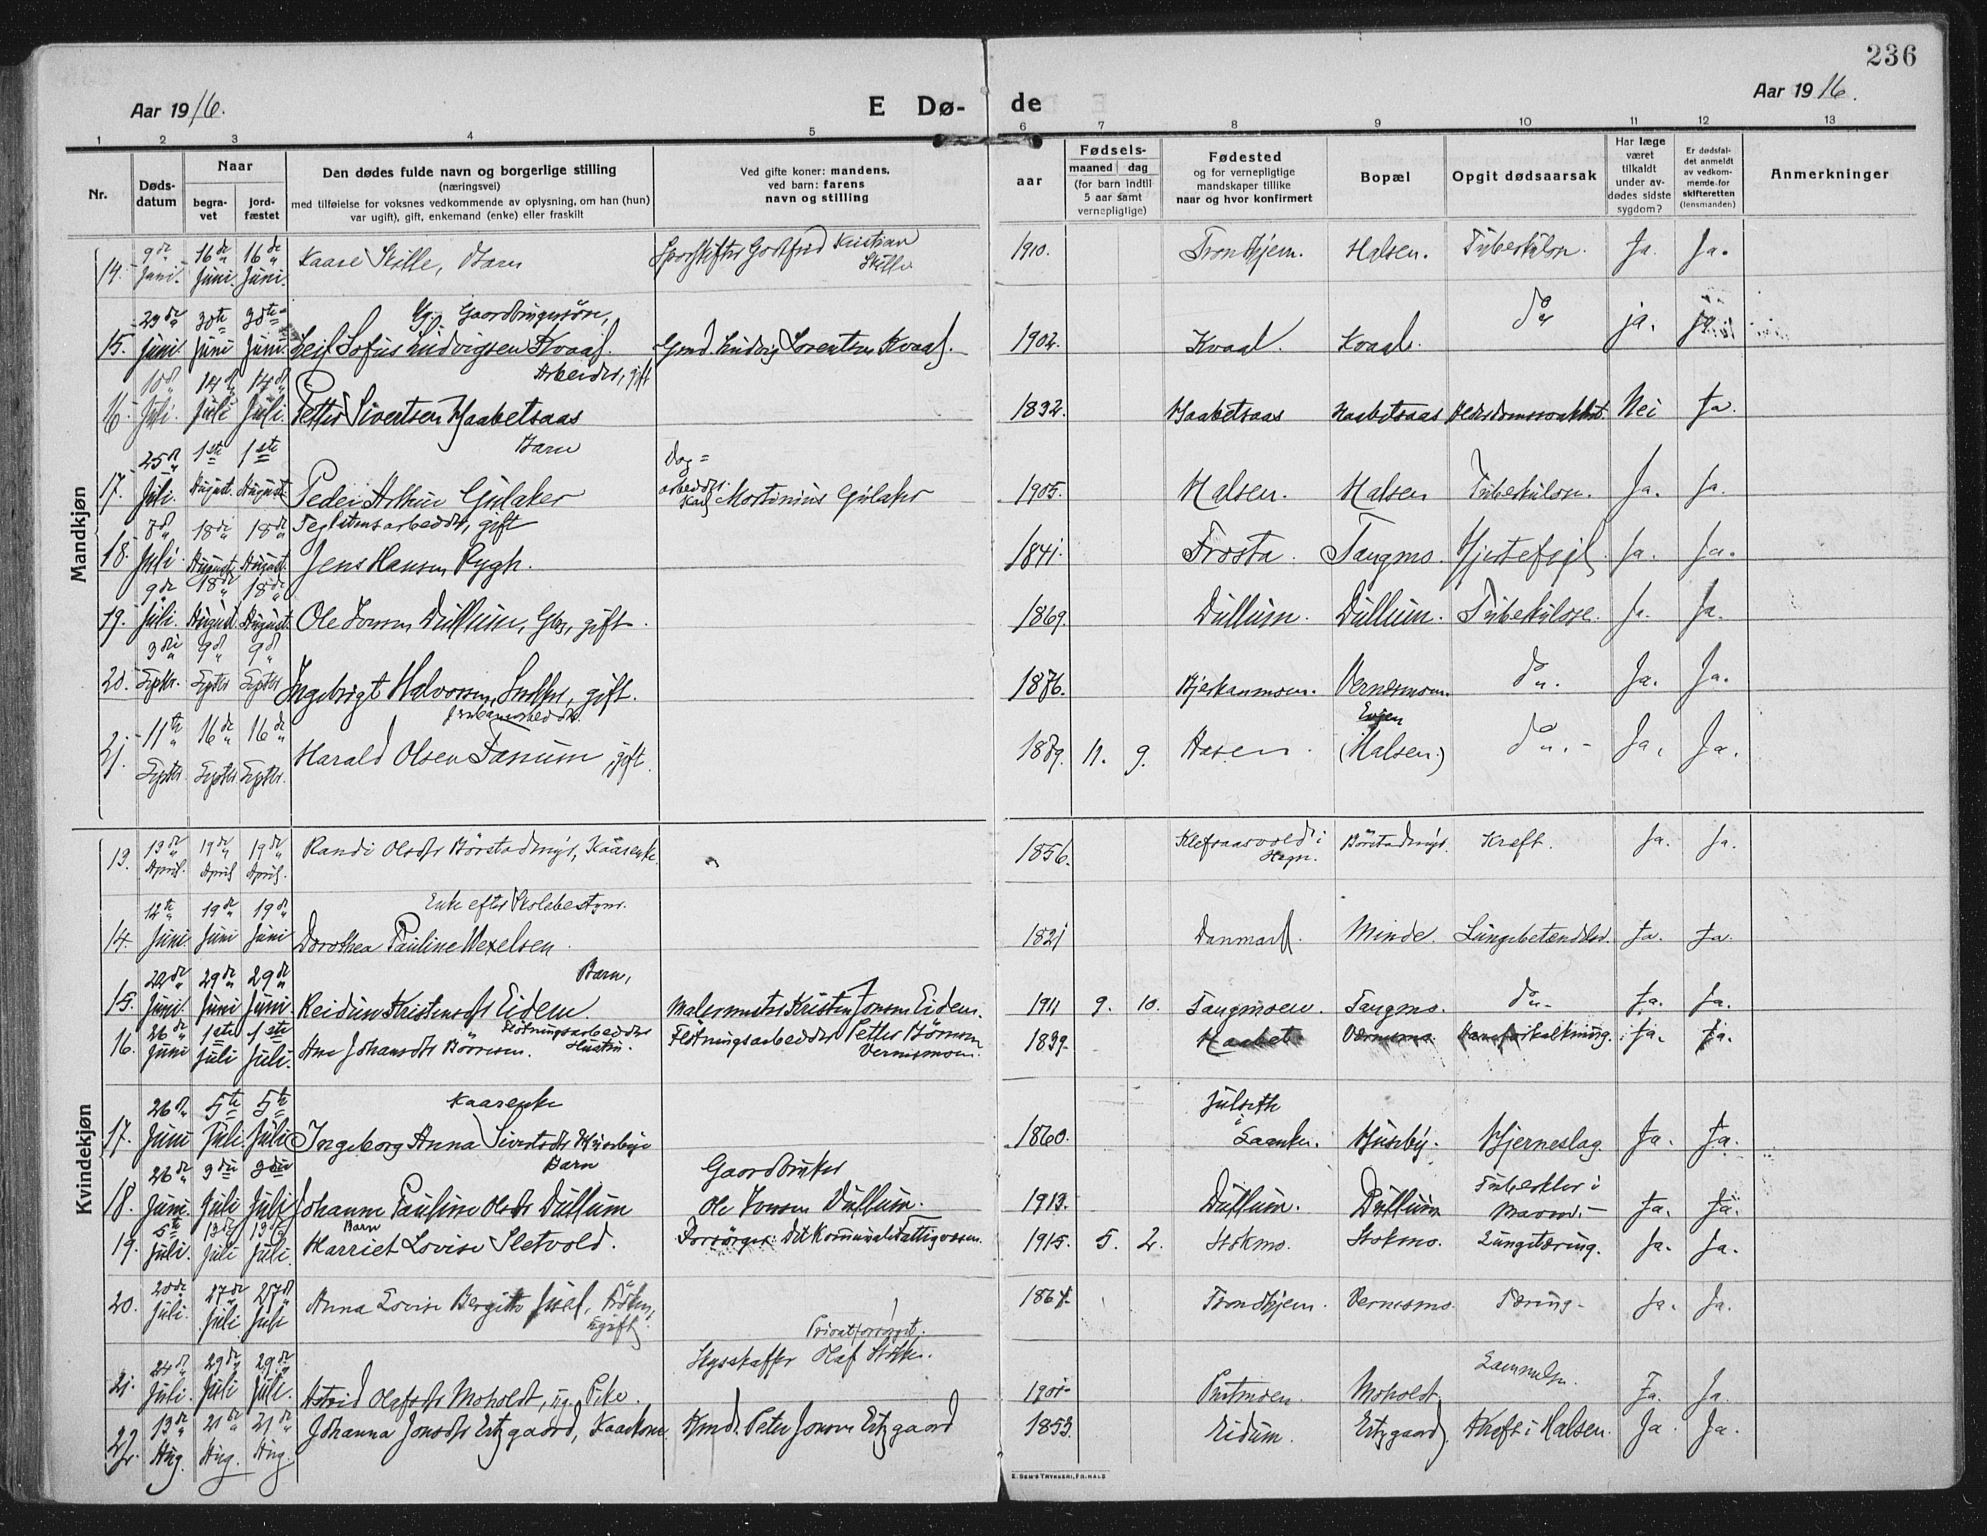 236
Aar 1916.
E Dø-
de
Aar 1916.
1 2 3 4 5 6 7 8 9 10 11 12 13
Nr.
Døds-
datum
Naar
begra-
vet
jord-
fæstet
Den dødes fulde navn og borgerlige stilling
(næringsvei)
med tilføielse for voksnes vedkommende av oplysning, om han (hun)
var ugift), gift, enkemand (enke) eller fraskilt
Ved gifte koner: mandens,
ved barn: farens
navn og stilling
aar
Fødsels-
maaned dag
(for barn indtil
5 aar samt
vernepligtige)
Fødested
og for vernepligtige
mandskaper tillike
naar og hvor konfirmert
Bopæl
Opgit dødsaarsak
Har læge
været
tilkaldt
under av-
dødes sidste
sygdom?
Er dødsfal-
det anmeldt
av vedkom-
mende for
skifteretten
(lensmanden)
Anmerkninger
Mandkjøn
14. 9de Juni. 16de Juni. 16de Juni. Kaare Skille, Barn Sporskifter Gotfred Kristian Skille 1910. Trondhjem. Halsen. Tuberkulose. Ja. Ja.
15. 23de Juni. 30te Juni 30te Juni Ug. Gaardbrugersøn,
Leif Sofus Ludvigsen Kvaal. Gmd. Ludvig Lorentsen Kvaal. 1902. Kvaal. Kvaal. do ja. ja.
16. 10d Juli. 14d Juli 14d Juli. Arbeider, gift
Petter Sivertsen Haabetsaas 1832. Haabetsaas Haabetsaas Alderdomssvakhet Nei Ja.
17. 25d Juli 1ste August. 1ste August. Barn
Peder Arthur Gulaker Dag=
arbeider Karl Martinius Gulaker 1905. Halsen. Halsen Tuberkulose. Ja. Ja.
18. 7d Juli. 18de August 18de August. Teglstensarbeider, gift
Jens Hansen Rygh. 1841. Frosta. Tangmo. Hjertefeil. Ja. Ja.
19. 9de Juli. 18de August. 18de August. Ole Jonsen Dullum, Gbr., gift. 1869. Dullum. Dullum. Tuberkulose. Ja. Ja.
20. 3die Septbr. 9d Septbr 9d Septbr Ingebrigt Halvorsen, Snekker, gift. 1876. Bjerkanmoen. Vernesmoen. do. Ja. Ja.
21. 11te Septbr. 16de Septbr. 16de Septbr. Jernbanearbeider.
Harald Olsen Fanum, gift. 1889. 11. 9. Aasen. (Halsen.) do. Ja. Ja.
Kvindekjøn
13. 13de April. 19de April 19de April. Randi Olsdtr Børstadmyr, Kaarenke. 1856. Klefsaasvold i Hegn. Børstadmyr. Kreft. Ja. Ja.
14. 12te Juni 19de Juni 19de Juni Enke efter Skolebestyrer.
Dorothea Pauline Wexelsen. 1821 Danmark. Minde. Lungebetændelse. Ja. Ja.
15. 24de Juni. 29de Juni 29de Juni. Barn,
Reidun Kristensdtr Eidem. Malermester Kristen Jonsen Eidem. 1911 9. 10. Tangmoen. Tangmo. do. Ja. Ja.
16. 26de Juni 1ste Juli 1ste Juli. Fløtningsarbeider Hustru.
Ane Johansdtr Børresen. Fløtningsarbeider Petter Børresen Vernesmoen. 1839. Haabet Værnesmo. Aareforkalkning. Ja. Ja.
17. 26d Juni 5te Juli. 5te Juli Kaarenke
Ingeborg Anna Sivertsdtr Husebye 1860. Julseth
i Laanke. Husby. Hjerneslag. Ja. Ja.
18. 26de Juni. 3die Juli 3die Juli Barn
Johanne Pauline Olsdtr Dullum Gaardbruker
Ole Jonsen Dullum. 1913. Dullum. Dullum Tuberkler i
Maven. Ja. Ja.
19. 5te Juli. 13de Juli 13de Juli. Barn
Harriet Lovise Sletvold. Forsørger: Det Kommunale Fattigvæsen. 1915. 5. 2. Stokmo. Stokmo. Lungetæring. Ja. Ja.
20. 20de Juli. 27de Juli 27de Juli Anna Lovise Bergitte Juel, Frøken, ugift. Privatforsørget. 1864. Trondhjem. Vernesmo. Tæring. Ja. Ja.
21. 24d Juli. 29de Juli 29de Juli. Astrid Olafsdtr Moholdt, ug. Pike. Skysskaffer Olaf Stokke. 1901. Prestmoen. Moholdt. Ja. Ja.
22. 13de Aug. 21de Aug. 21de Aug. Johanna Jonsdtr Ertzgaard, Kaarkone. Kmd. Peter Jonsen Ertzgaard 1853. Eidum. Ertzgaard. Kreft i Halsen. Ja. Ja.
E. SEM'S TRYKKERI, FR.HALD